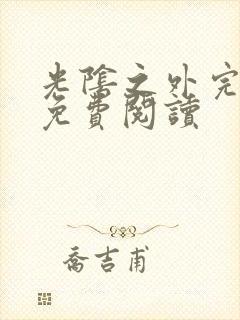 光陰之外完
免費閱讀
喬吉甫